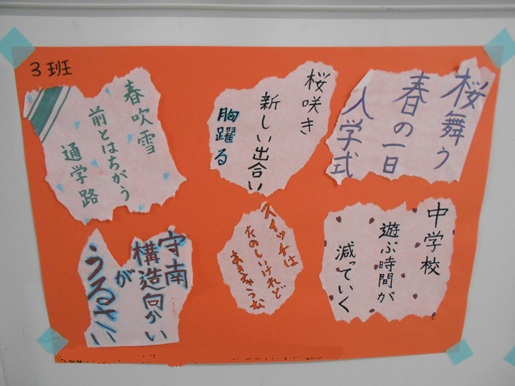 3班
桜舞う
春の一日
入学式
桜咲き
新しい出合い
胸躍る
春吹雪
前とはちがう
通学路
中学校
遊ぶ時間が
減っていく
スイッチは
たのしいけれど
守南
構造向かい
が
うるさい